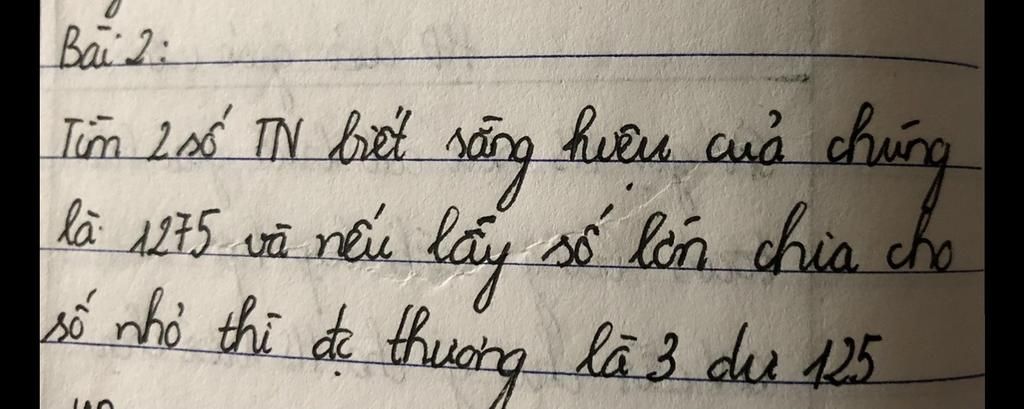 Bài 2:
Tìm 2 số TN biết rằng hiệu của chúng
là 1275 và nếu lấy số lớn chia cho
số nhỏ thì đc thương là 3 dư 125